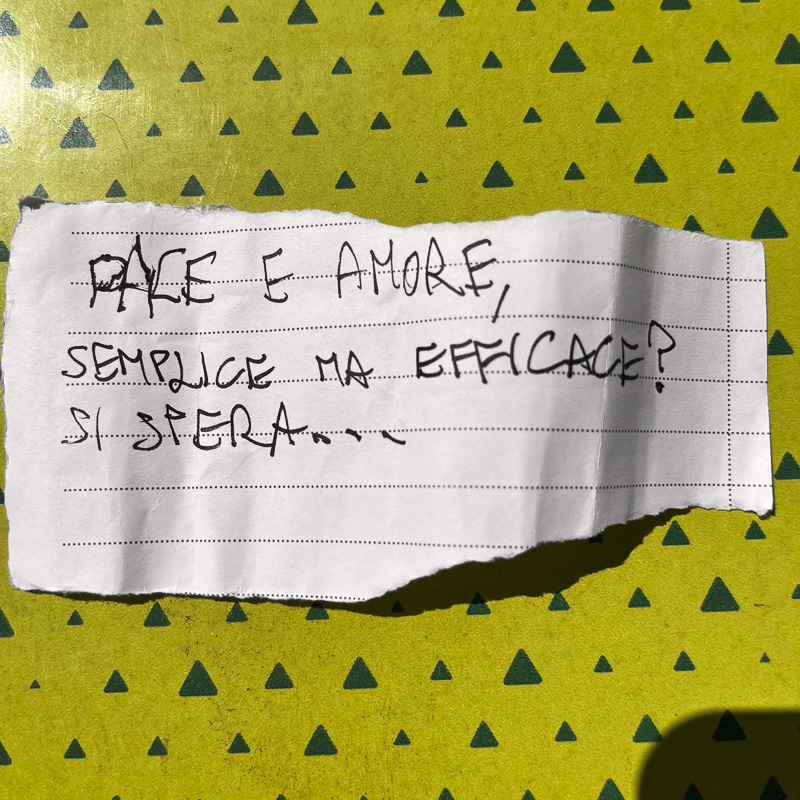 PACE E AMORE,
SEMPLICE MA EFFICACE?
SI SPERA....